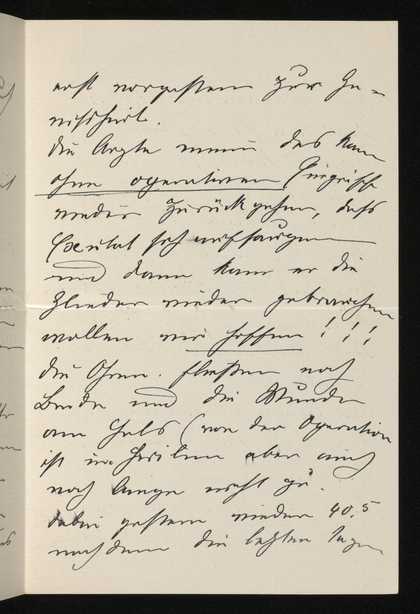 erst vorgestern zur Ge-
wissheit.
die Ärzte meinen das kann
ohne operativen Eingriff
wieder zurückgehen, dass
Exsudat sich aufsaugen
und dann kann er die
Glieder wieder gebrauchen
wollen wir hoffen!!!
die Ohren fließen noch
Beide und die Wunde
am Hals (von der Operation
ist im Heilen aber auch
noch lange nicht zu.
dabei gestern wieder 40.5
nachdem die letzten Tage